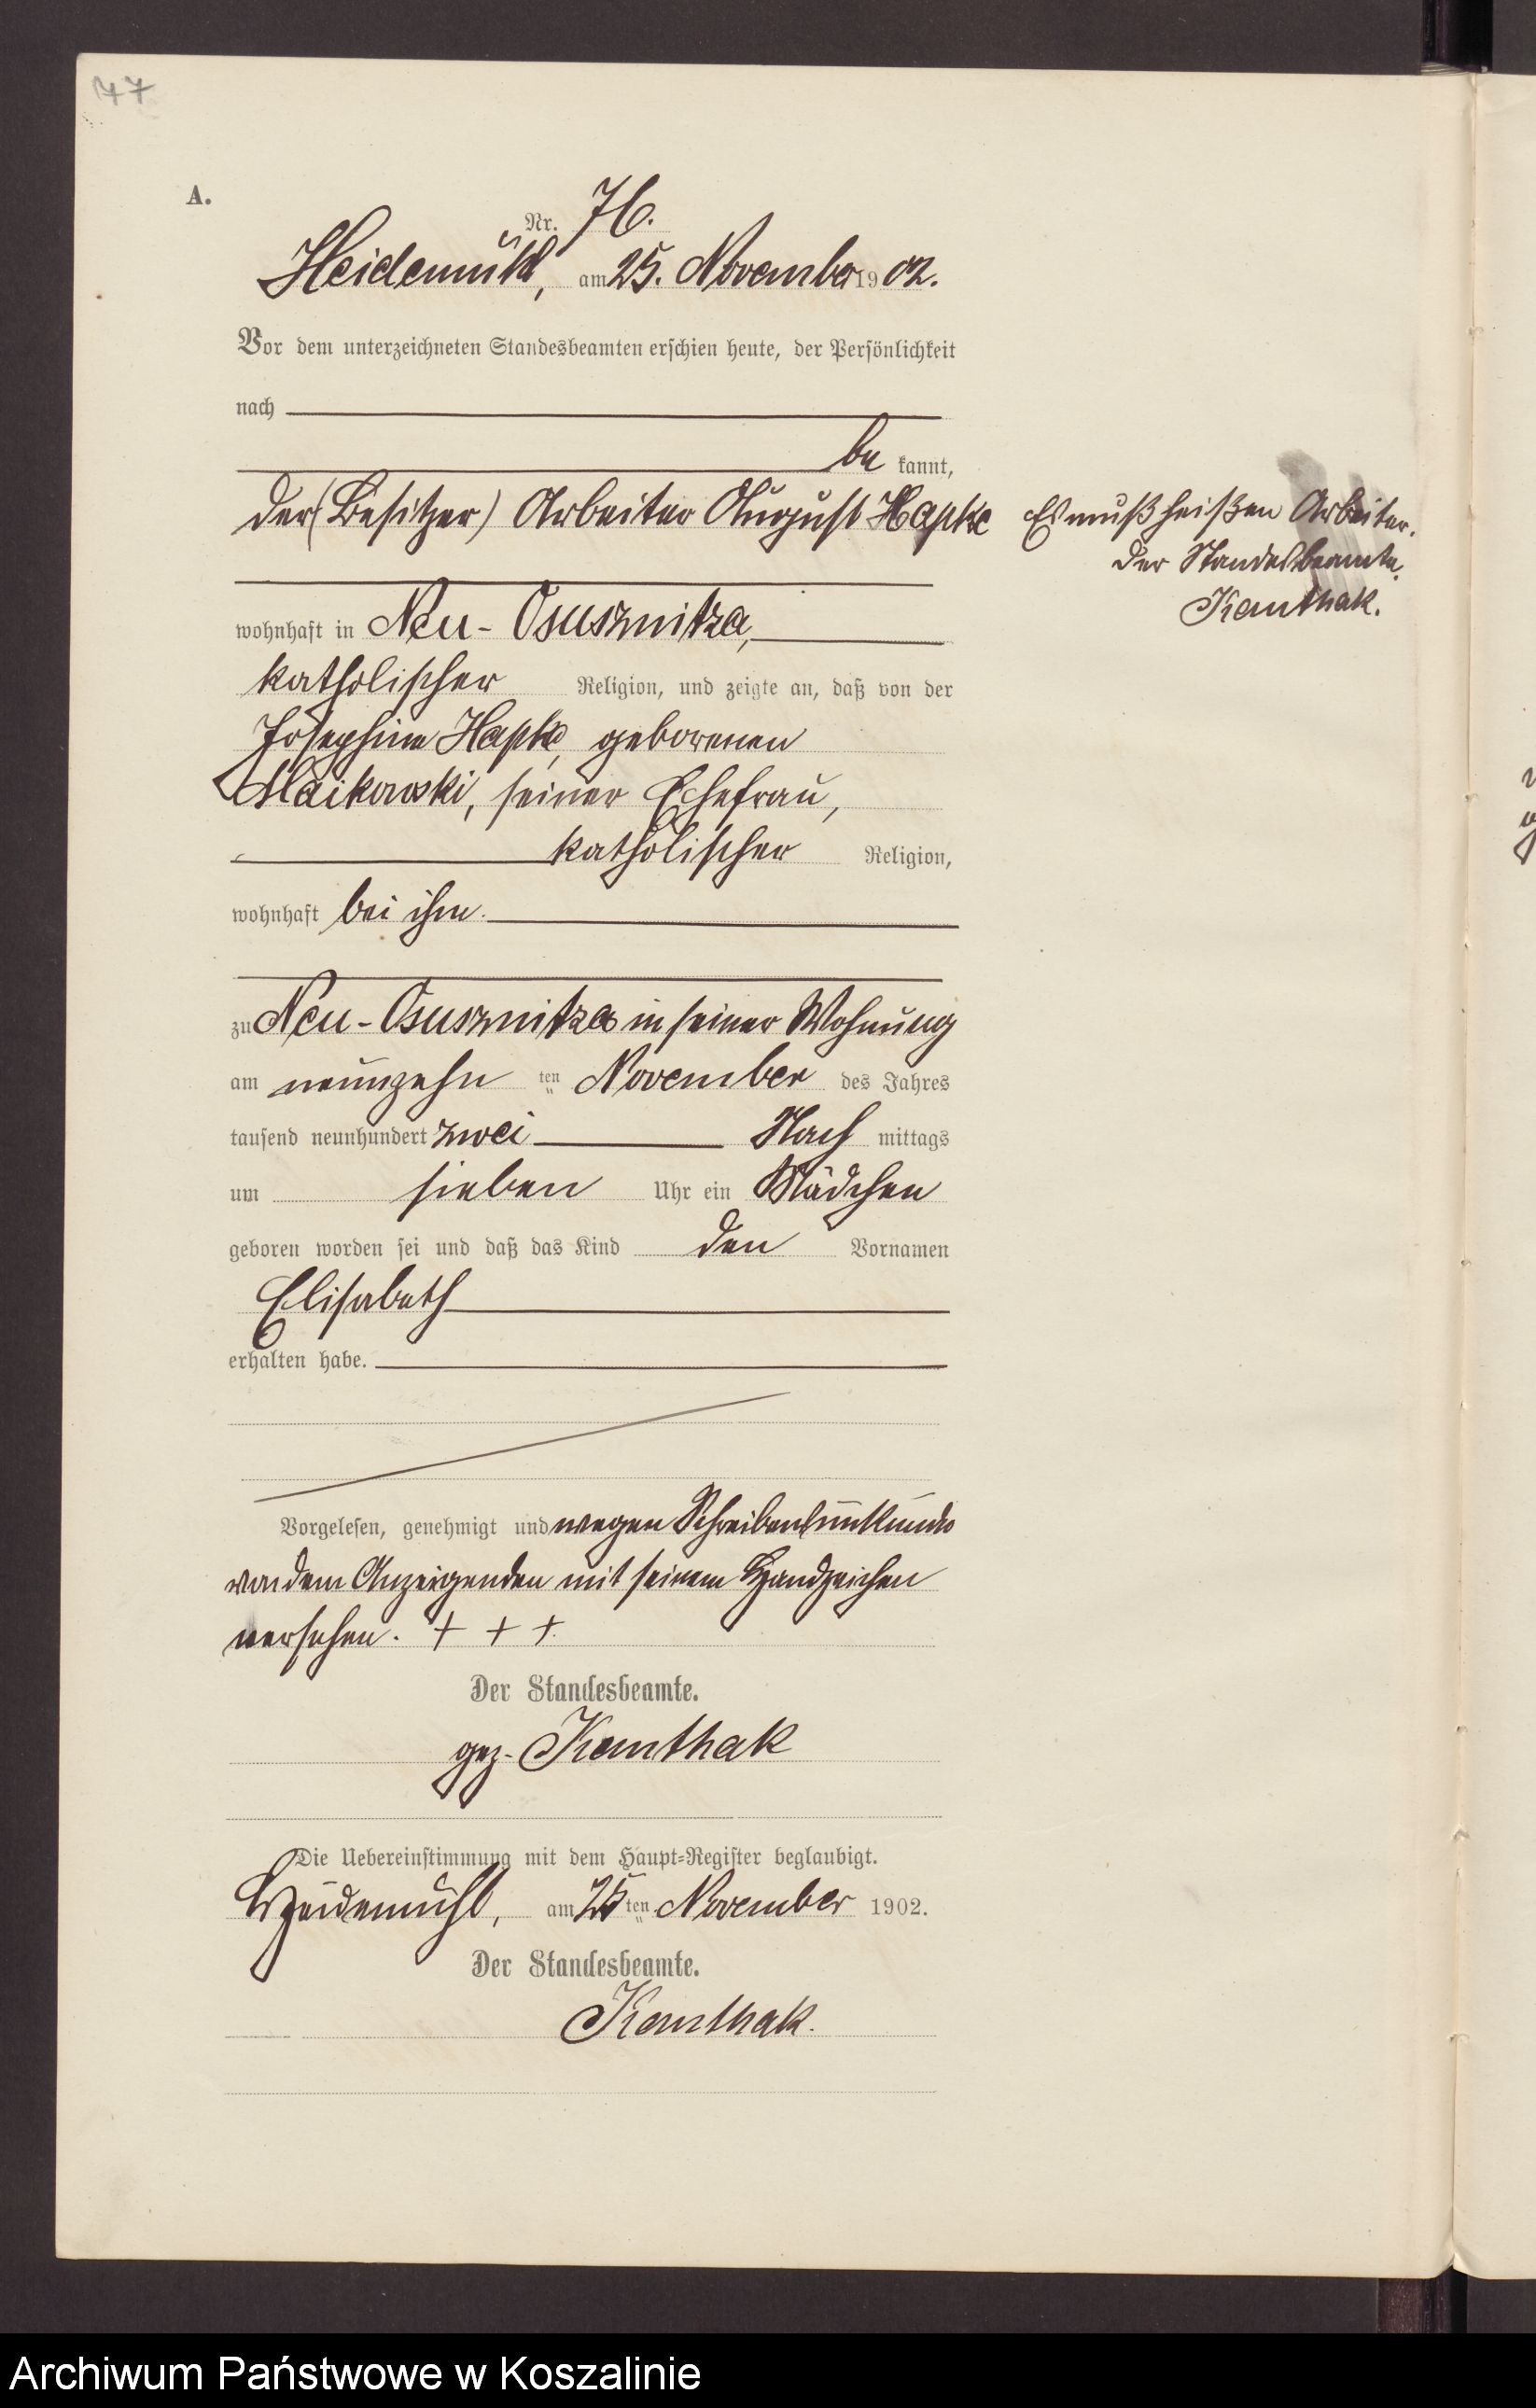 77
A.
Nr. 76.
Heidemühl, am 25. November 1902.
Vor dem unterzeichneten Standesbeamten erschien heute, der Persönlichkeit
nach
be kannt,
der (Besitzer) Arbeiter August Hapke
Es muß heißen Arbeiter.
Der Standesbeamte.
Kanthak.
wohnhaft in Neu-Osusznitza,
katholischer Religion, und zeigte an, daß von der
Josephine Hapke, geborenen
Maikowski, seiner Ehefrau,
katholischer Religion,
wohnhaft bei ihm.
zu Neu-Osusznitza in seiner Wohnung
am neunzehn ten November des Jahres
tausend neunhundert zwei Nach mittags
um sieben Uhr ein Mädchen
geboren worden sei und daß das Kind den Vornamen
Elisabeth
erhalten habe.
Vorgelesen, genehmigt und wegen Schreibensunkunde
von dem Anzeigenden mit seinem Handzeichen
versehen. + + +
Der Standesbeamte.
gez. Kanthak
Die Uebereinstimmung mit dem Haupt-Register beglaubigt.
Heidemühl, am 25ten November 1902.
Der Standesbeamte.
Kanthak.
Archiwum Państwowe w Koszalinie